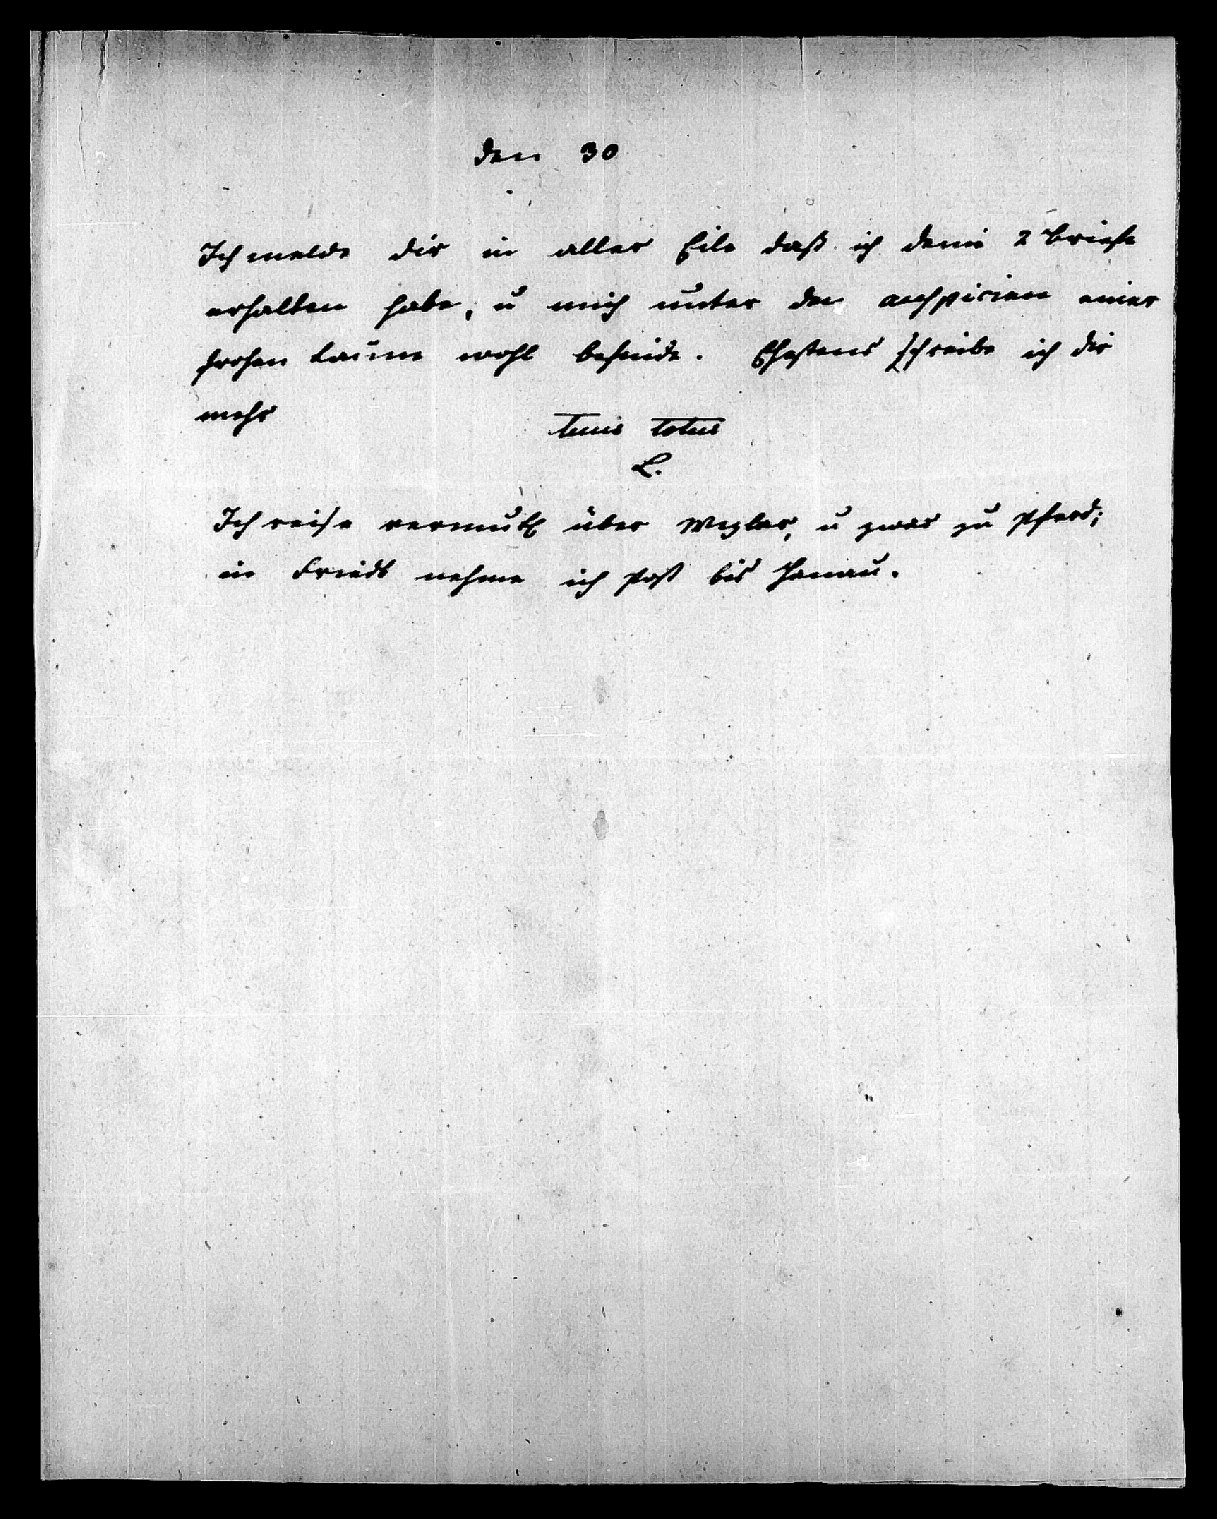 den 30
Ich melde dir in aller Eile daß ich deine 2 Briefe
erhalten habe, u mich unter den auspicien einer
frohen Laune wohl befinde. Ehestens schreibe ich dir
mehr
tuus totus
L.
Ich reise vermutl über Wezlar, u zwar zu Pferd;
in Friedb nehme ich Post bis Hanau.